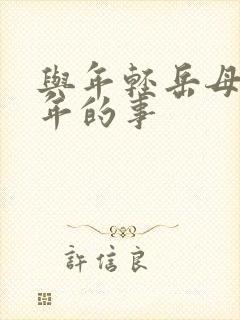 與年輕岳母
年的事
許信良